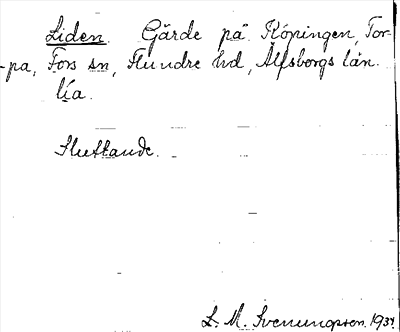 Liden. Gärde på Köpingen, Tor-
-pa, Fors sn, Flundre hd, Älfsborgs län.
lia.
Sluttande.
L. M. Svenungsson. 1934.